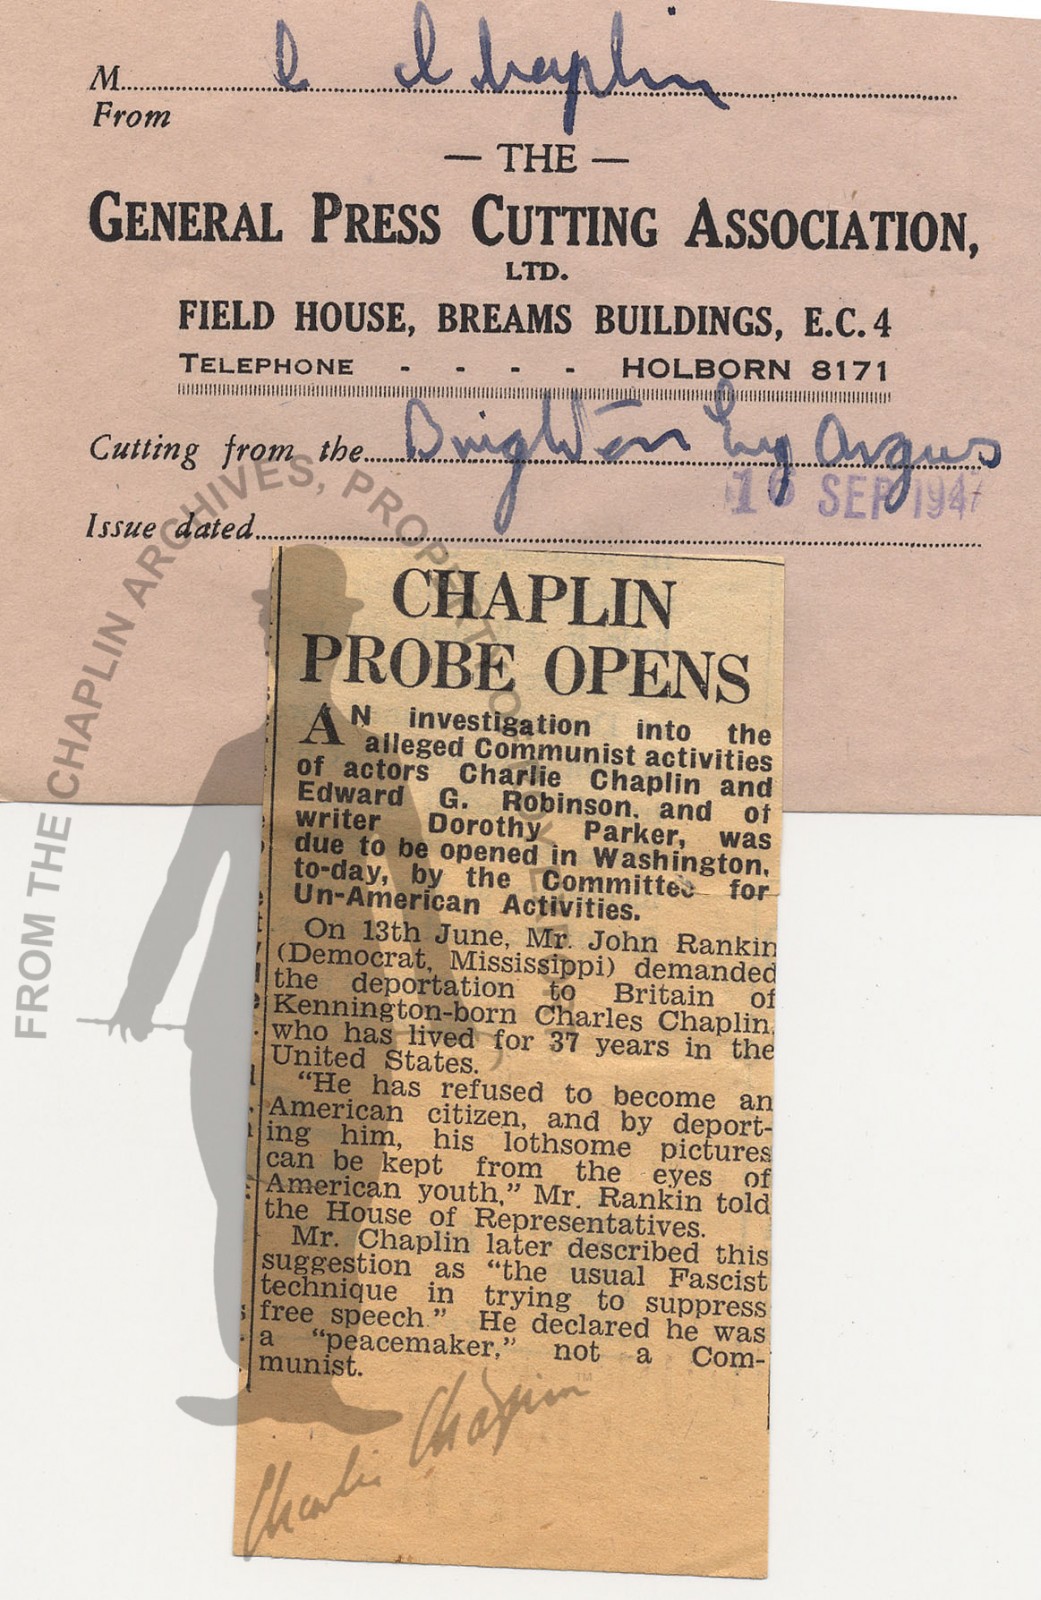 M. C Chaplin
From
— THE —
GENERAL PRESS CUTTING ASSOCIATION,
LTD.
FIELD HOUSE, BREAMS BUILDINGS, E.C.4
TELEPHONE - - - - HOLBORN 8171
Cutting from the Brighton Evg Argus
16 SEP 1947
Issue dated
CHAPLIN
PROBE OPENS
AN investigation into the
alleged Communist activities
of actors Charlie Chaplin and
Edward G. Robinson, and of
writer Dorothy Parker, was
due to be opened in Washington,
to-day, by the Committee for
Un-American Activities.
On 13th June, Mr. John Rankin
(Democrat, Mississippi) demanded
the deportation to Britain of
Kennington-born Charles Chaplin,
who has lived for 37 years in the
United States.
"He has refused to become an
American citizen, and by deport-
ing him, his lothsome pictures
can be kept from the eyes of
American youth," Mr. Rankin told
the House of Representatives.
Mr. Chaplin later described this
suggestion as "the usual Fascist
technique in trying to suppress
free speech." He declared he was
a "peacemaker," not a Com-
munist.
Charlie Chaplin™
FROM THE CHAPLIN ARCHIVES, PROPERTY OF ROY EXPORT